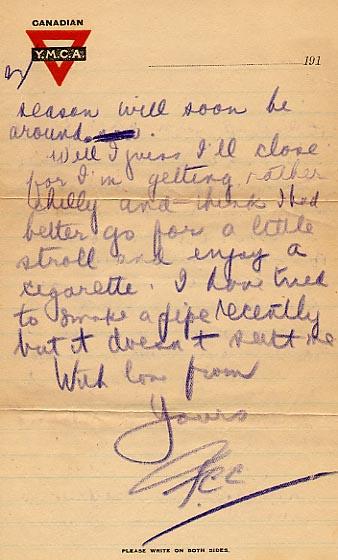 CANADIAN
Y.M.C.A.
191
2/
season will soon be
around.
Well I guess I'll close
for I'm getting rather
chilly and think I had
better go for a little
stroll and enjoy a
cigarette. I have tried
to smoke a pipe recently
but it doesn't suit me
With love from
Yours
PLEASE WRITE ON BOTH SIDES.